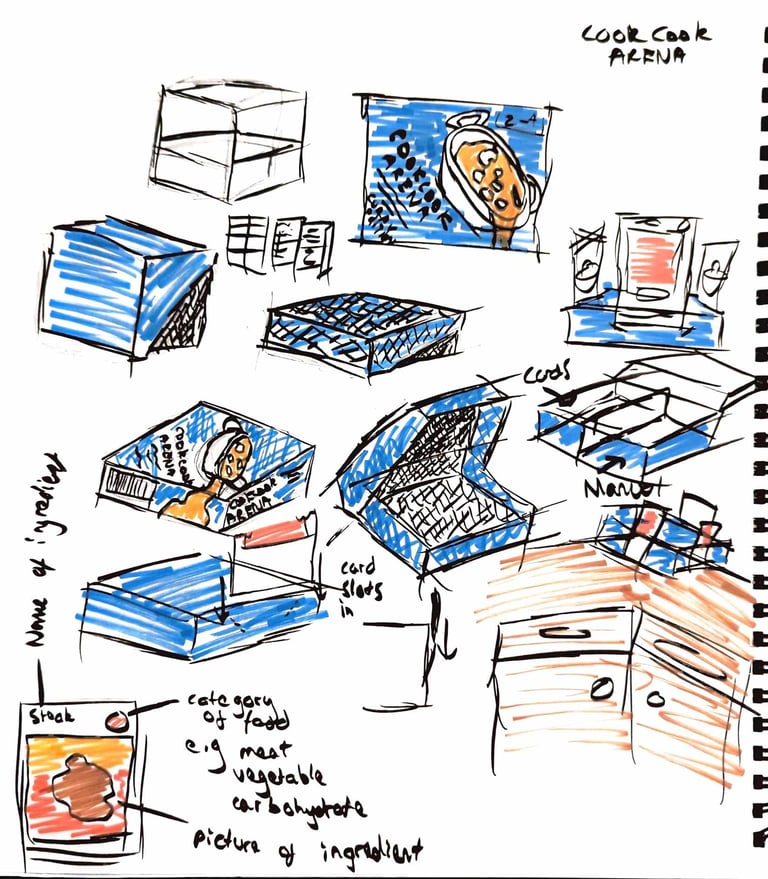 COOK COOK
ARENA
2-4
COOKCOOK
ARENA
Cards
COOKCOOK
ARENA
COOKCOOK
ARENA
Name of ingredient
card
slots
in
Steak
category
of food
e.g meat
vegetable
carbohydrate
picture of ingredient